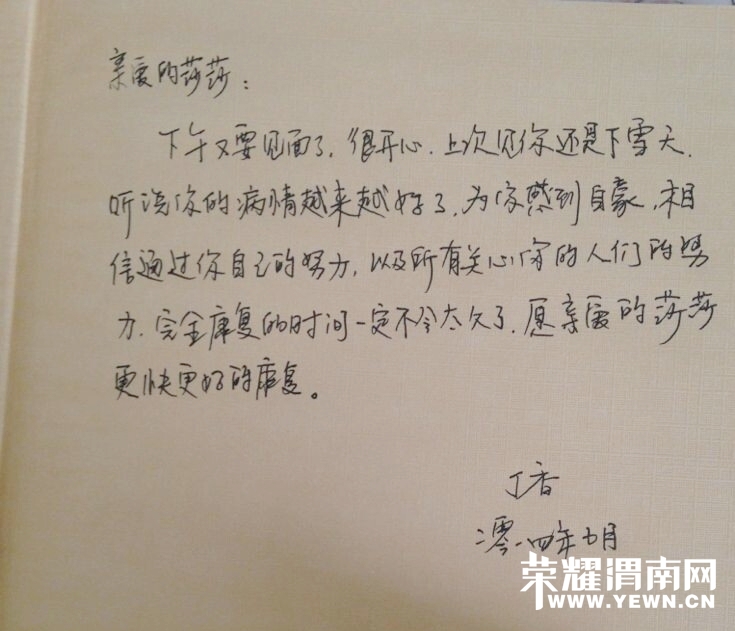 亲爱的莎莎：
下午又要见面了，很开心，上次见你还是下雪天，
听说你的病情越来越好了，为你感到自豪，相
信通过你自己的努力，以及所有关心你的人们的努
力，完全康复的时间一定不会太久了，愿亲爱的莎莎
更快更好的康复。
丁香
二零一四年七月
荣耀渭南网
WWW.YEWN.CN